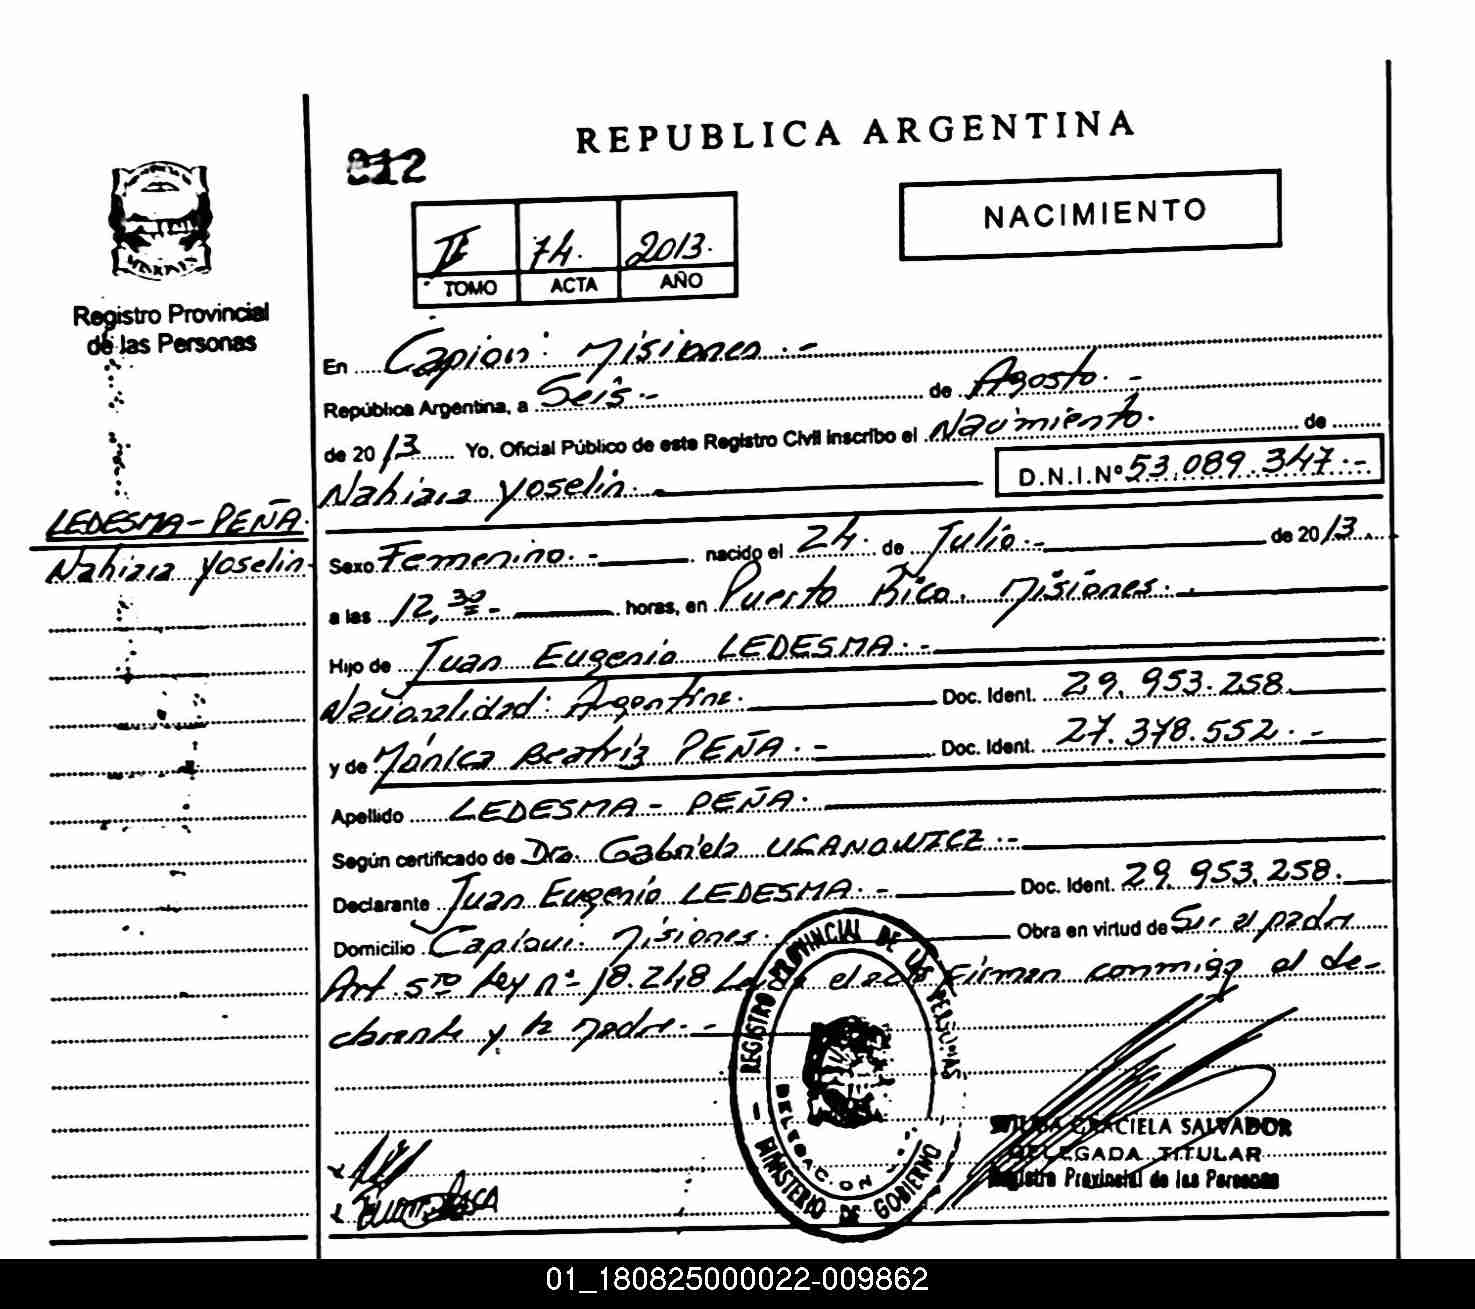 REPUBLICA ARGENTINA
812
NACIMIENTO
II 74. 2013.
TOMO ACTA AÑO
Registro Provincial
de las Personas
En Capioví: Misiones.-
República Argentina, a Seis.- de Agosto.-
de 2013 Yo, Oficial Público de este Registro Civil inscribo el Nacimiento. de
Nahiara Yoselin.- D.N.I.Nº 53.089.347.-
LEDESMA-PEÑA.
Nahiara Yoselin.
Sexo Femenino.- nacido el 24. de Julio.- de 2013.
a las 12,30- horas, en Puerto Rico. Misiones.-
Hijo de Juan Eugenio LEDESMA.-
Nacionalidad: Argentina. Doc. Ident. 29.953.258
y de Mónica Beatriz PEÑA.- Doc. Ident. 27.378.552.-
Apellido LEDESMA- PEÑA.
Según certificado de Dra. Gabriela UCANOWICZ.-
Declarante Juan Eugenio LEDESMA.- Doc. Ident. 29.953.258.
Domicilio Capioví. Misiones. Obra en virtud de Ser el padre
Art. 5to Ley nº 18.248 el acta Firman conmigo el de-
clarante y la madre.-
REGISTRO PROVINCIAL DE LAS PERSONAS
DELEGACION
MINISTERIO DE GOBIERNO
GRACIELA SALVADOR
DELEGADA TITULAR
Registro Provincial de las Personas
01_180825000022-009862